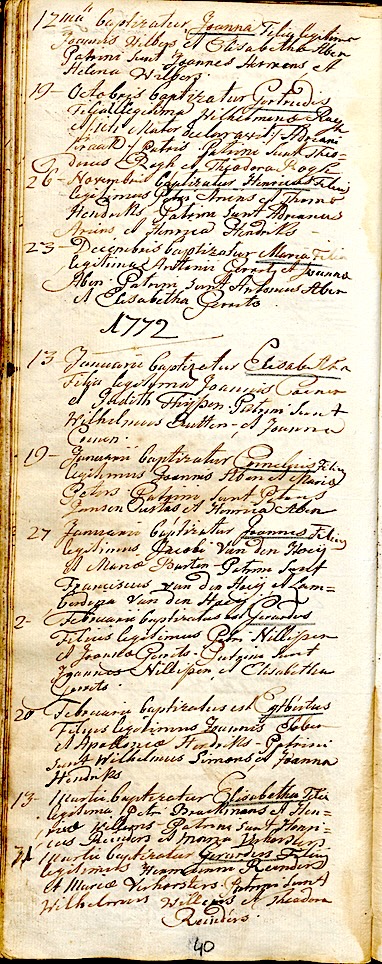 12 ma baptizatur Joanna Filia legitima
Joannis Wilbers et Elisabetha Aben
Patrini sunt Joannes Hermens et
Helena Wilbers
19 - Octobris baptizatur Gertrudis
Filia legitima Wilhelmi
Mater
Patris Patrini sunt Theo=
dorus et Theodora
26 - Novembris baptizatur Henricus Filius
legitimus Petri Ariens et
Hendriks Patrini sunt Adrianus
Ariens et Henrica Hendriks -
23 - Decembris baptizatur Maria Filia
legitima Antonii Gerrits et Joanna
Aben - Patrini sunt Antonius Aben
et Elisabetha Gerrits
1772
13 Januarii baptizatur Elisabetha
Filia legitima Joannis Coenen
et Judith Thijssen Patrini sunt
Wilhelmus Rutten et Joanna
Coenen
19 - Januarii baptizatur Cornelius Filius
legitimus Joannis Aben et Maria
Peters Patrini sunt Petrus
Jansen et Henrica Aben
27 Januarii baptizatur Joannes Filius
legitimus Jacobi van den Heuij
et Maria Patrini sunt
Franciscus van den Heuij et Lam=
berdina van den
2 - Februarii baptizatus est Gerardus
Filius legitimus Petri Nillissen
et Joanna Gerrits - sunt
Joannes Nillissen et Elisabetha
Gerrits
20 Februarii baptizatus est Egbertus
Filius legitimus Joannis
et Apollonia Hendriks - Patrini
sunt Wilhelmus Simons et Joanna
Hendriks
13 - Martii baptizatur Elisabetha Filia
legitima Petri Braekmans et Hen=
rica Willems Patrini sunt Henri=
cus Reinders et Maria Verhorsten
31 Martii baptizatur Gerardus Filius
legitimus Hermanni Reinders
et Maria Verhorsten Patrini sunt
Wilhelmus Willems et Theodora
Reinders
40